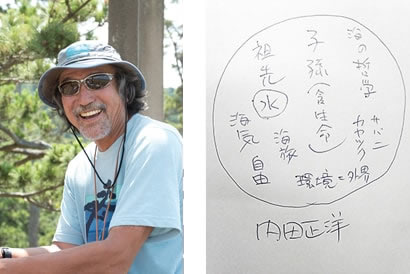 海の哲学
子孫(含生命)
祖先
水
サバニ
カヤック
海旅
海気
自由
環境=外界
内田正洋